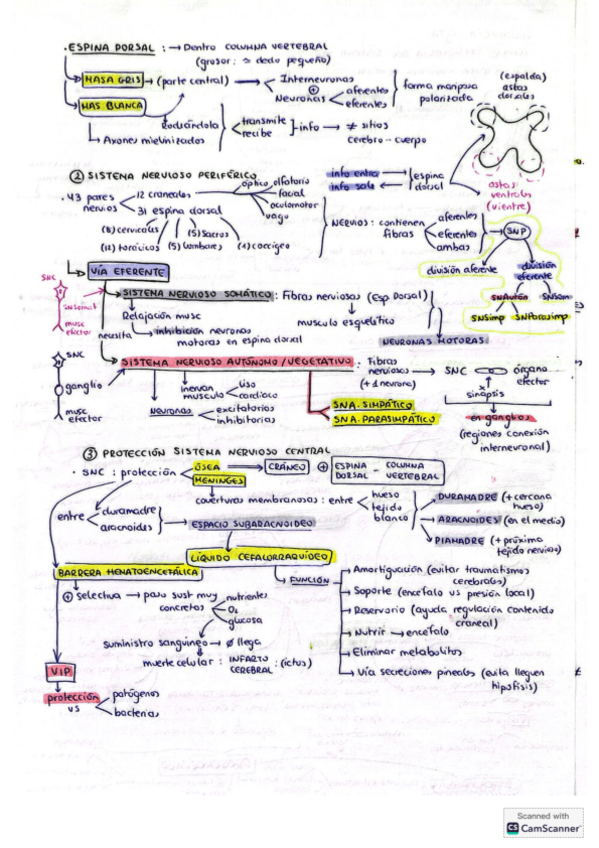 · ESPINA DORSAL : → Dentro COLUMNA VERTEBRAL
(grosor: ≈ dedo pequeño)
MASA GRIS → (parte central) → Interneuronas
⊕
Neuronas aferentes
eferentes
forma mariposa
polarizada
(espalda)
astas
dorsales
MAS BLANCA
Rodeándola
transmite
recibe
info → ≠ sitios
cerebro - cuerpo
Axones mielinizados
astas
ventrales
(vientre)
② SISTEMA NERVIOSO PERIFÉRICO
· 43 pares
nervios
12 craneales
óptico
olfatorio
facial
oculomotor
vago
31 espina dorsal
(8) cervicales
(5) sacros
(12) torácicos (5) lumbares (1) coccígeo
info entra
info sale
espina
dorsal
NERVIOS : contienen
fibras
aferentes
eferentes
ambas
SNP
división aferente
división
eferente
SNAutón
SNSom
SNSimp SNParasimp
VÍA EFERENTE
SNC
SNSomat
musc
efector
SISTEMA NERVIOSO SOMÁTICO : Fibras nerviosas (Esp Dorsal)
Relajación musc
musculo esquelético
necesita
inhibición neuronas
motoras en espina dorsal
NEURONAS MOTORAS
SNC
ganglio
musc
efector
SISTEMA NERVIOSO AUTÓNOMO / VEGETATIVO : Fibras
nerviosas
(+ 1 neurona)
SNC
órgano
efector
sinapsis
en ganglios
(regiones conexión
interneuronal)
inervan
musculo
liso
cardíaco
NEURONAS
excitatorias
inhibitorias
SNA. SIMPÁTICO
SNA. PARASIMPÁTICO
③ PROTECCIÓN SISTEMA NERVIOSO CENTRAL
· SNC : protección
ÓSEA
CRÁNEO
⊕
ESPINA DORSAL - COLUMNA VERTEBRAL
MENINGES
coverturas membranosas : entre
hueso
tejido
blanco
DURAMADRE (+ cercana
hueso)
ARACNOIDES (en el medio)
PIAMADRE (+ próxima
tejido nervioso)
entre
duramadre
aracnoides
ESPACIO SUBARACNOIDEO
LÍQUIDO CEFALORRAQUÍDEO
FUNCIÓN
Amortiguación (evitar traumatismos
cerebrales)
Soporte (encéfalo vs presión local)
Reservorio (ayuda regulación contenido
craneal)
Nutrir → encéfalo
Eliminar metabolitos
Vía secreciones pineales (evita lleguen
hipófisis)
BARRERA HEMATOENCEFÁLICA
⊕ selectiva → paso sust muy
concretas
nutrientes
O₂
glucosa
suministro sanguíneo → ∅ llega
muerte celular : INFARTO
CEREBRAL
: (ictus)
VIP
protección
vs
patógenos
bacterias
Scanned with
CS CamScanner